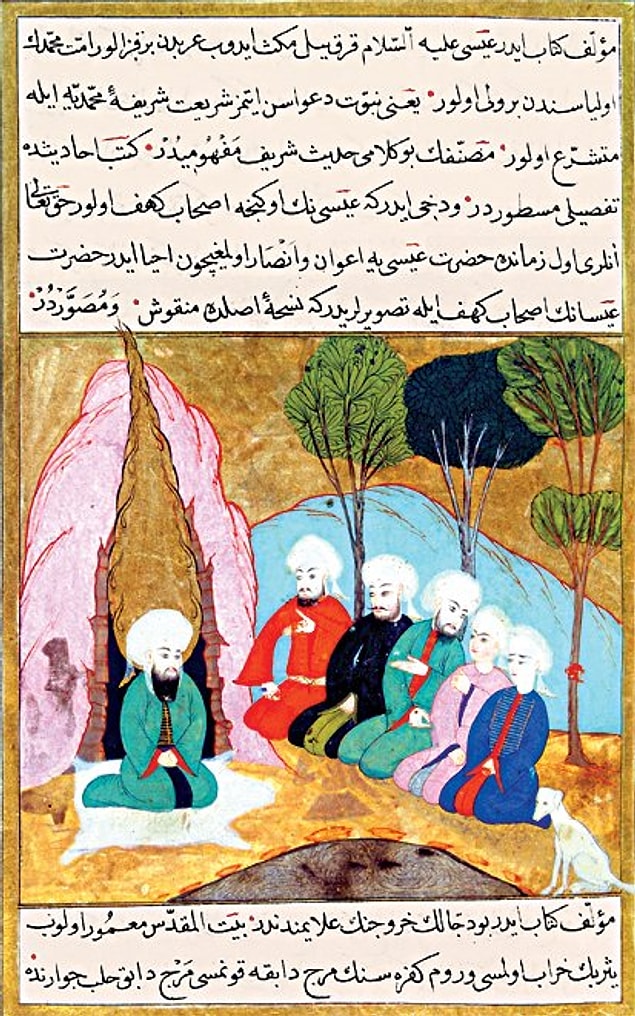 مؤلّف كتاب ايدر عيسى عليه السّلام قرق ييل مكث ايدوب عربدن بر قز الور امّت محمّدك
اولياسندن بر ولى اولور يعنى نبوّت دعواسن ايتمز شريعت شريفهٔ محمّديّه ايله
متشرّع اولور مصنّفك بو كلامى حديث شريف مفهوميدر كتب احاديثده
تفصيلى مسطوردر ودخى ايدركه عيسى نك اوكنجه اصحاب كهف اولور حق تعالى
انلرى اول زمانده حضرت عيسى يه اعوان وانصار اولمغيچون احيا ايدر حضرت
عيسانك اصحاب كهف ايله تصويرلريدركه نسخهٔ اصلده منقوش ومصوّردر
مؤلّف كتاب ايدر بو دجالك خروجنك علايمندندر بيت المقدّس معمور اولوب
يثربك خراب اولمسى وروم كفره سنك مرج دابقه قونمسى مرج دابق حلب جوارنده